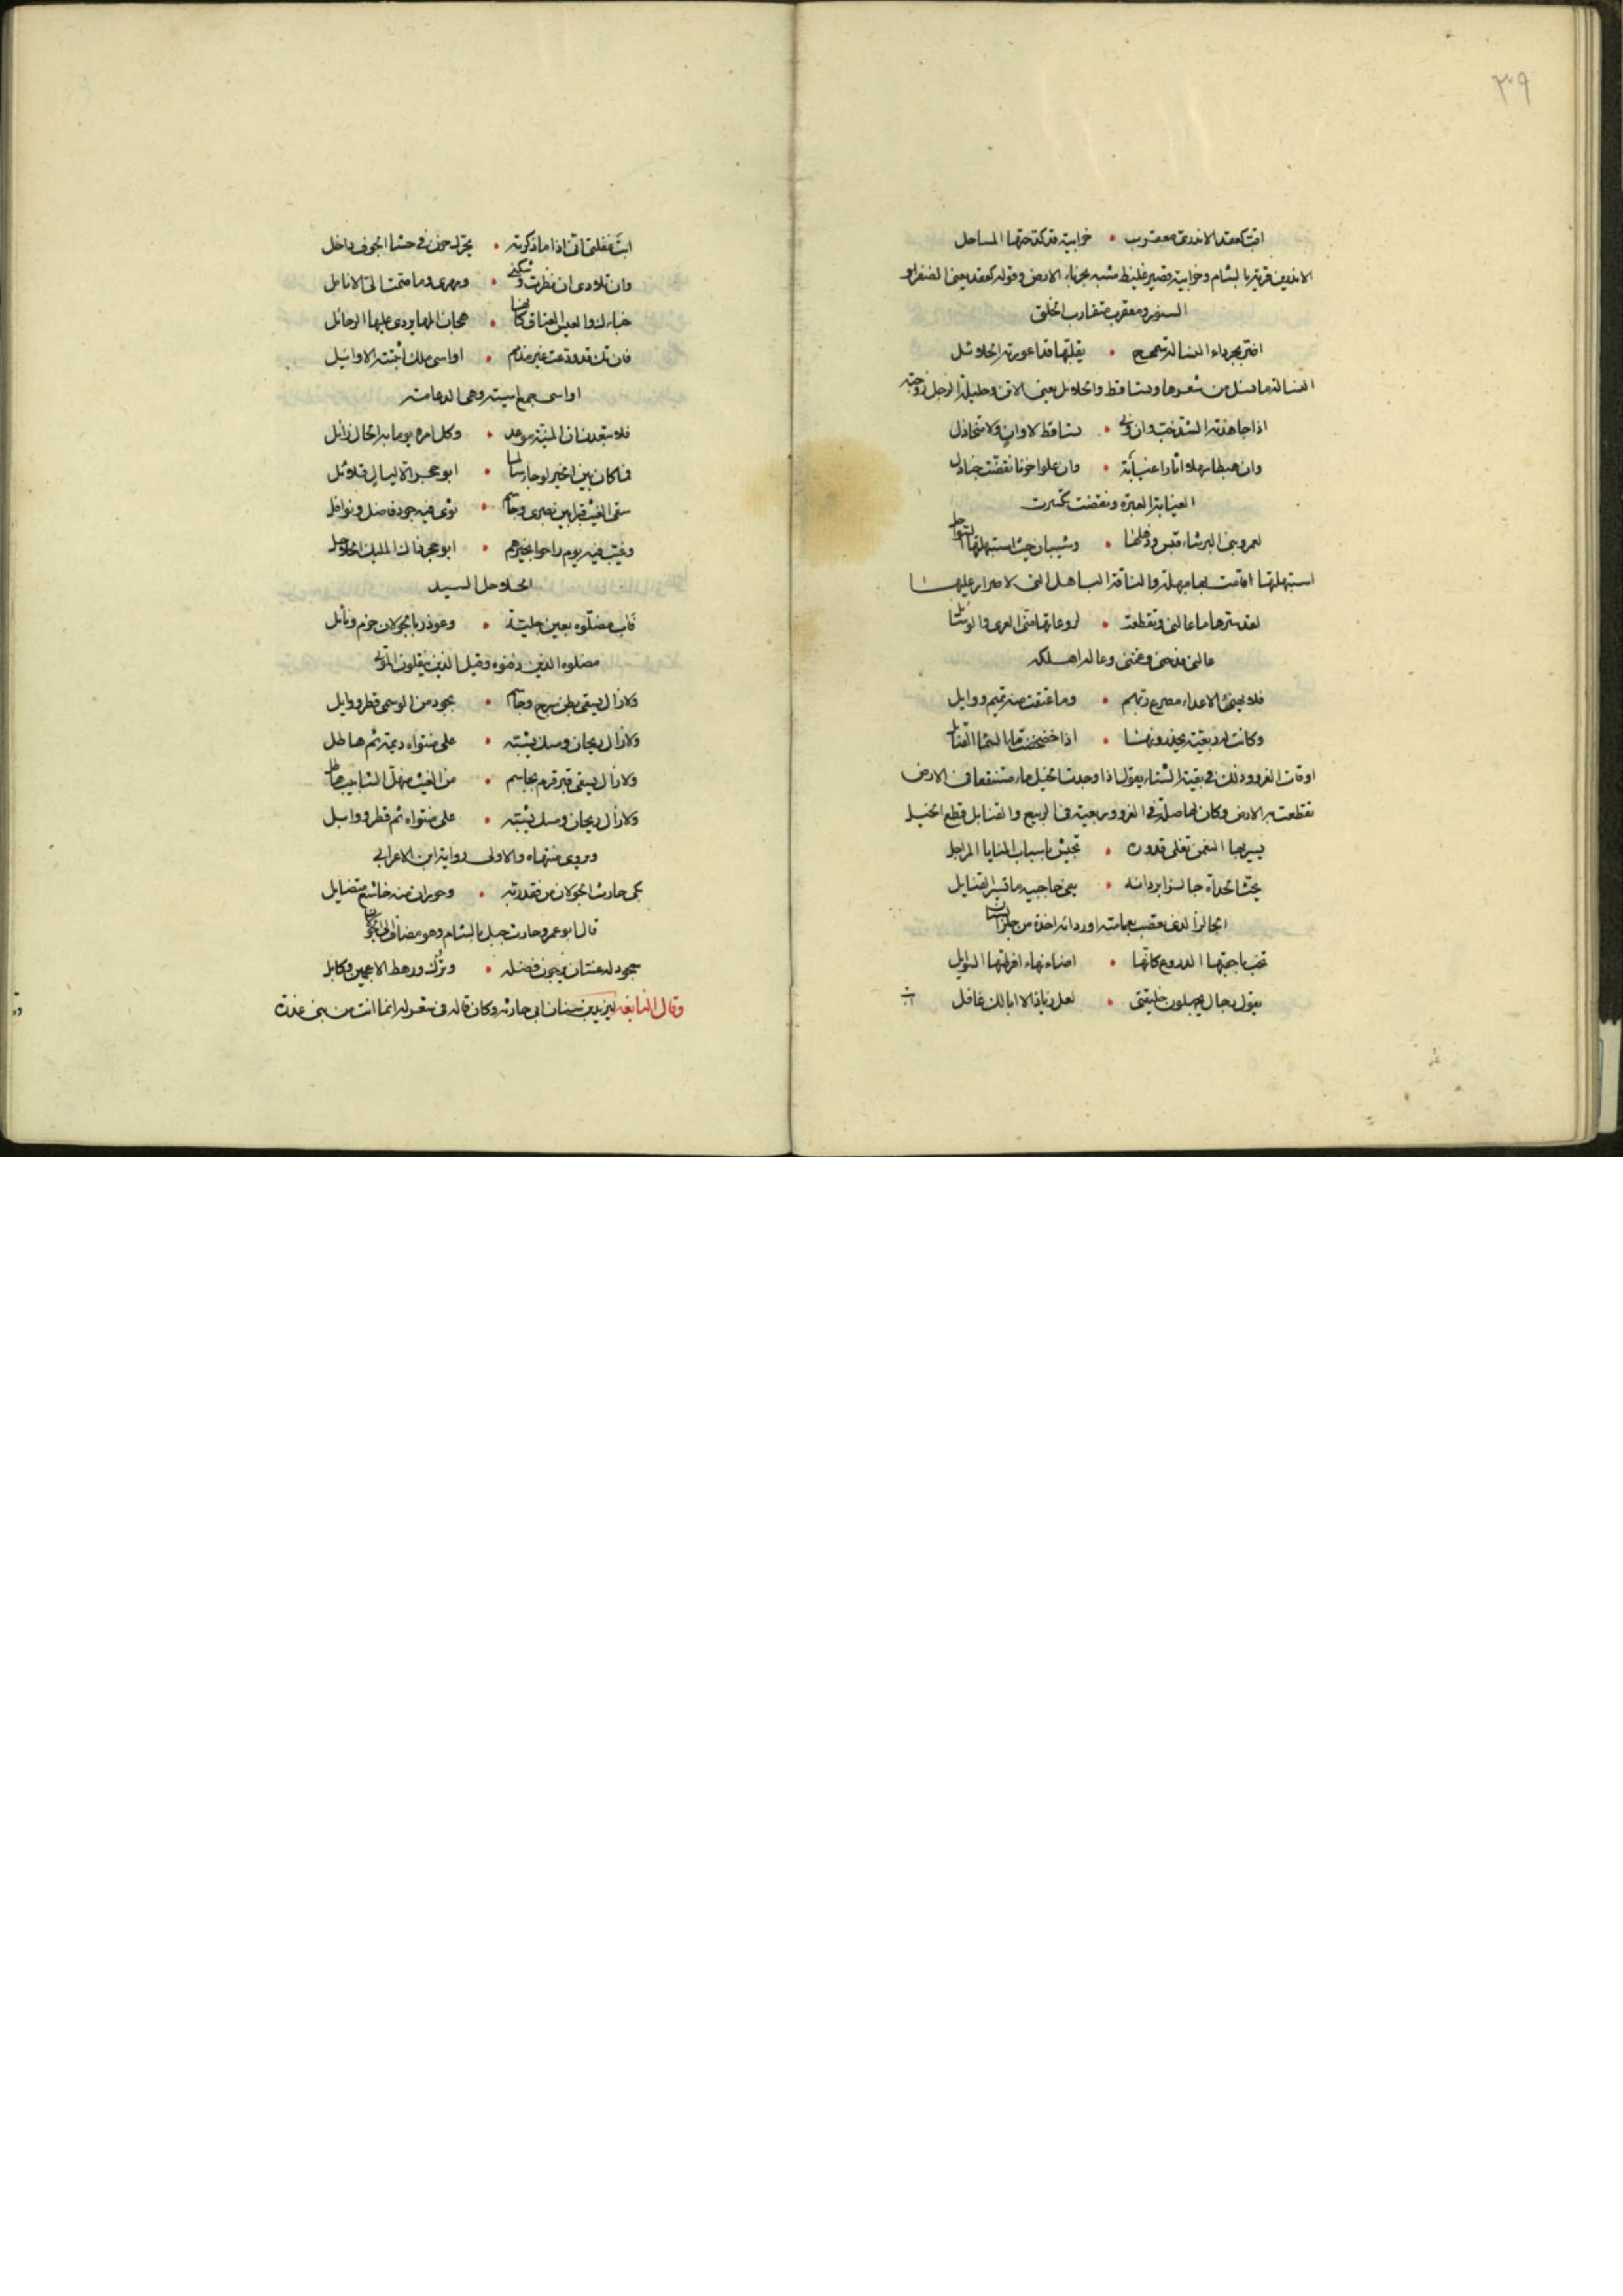 ٣٩
اقب كعقد الاندري معقرب • حزابية قد كدحتها المساحل
الاندرين قرية بالشام وحزابية قصير غليظ مشبه بحزباء الارض وقوله كعقد يعني
السنور ومعقرب متقارب الخلق
اضر بجرداء النسالة سمحج • يقلبها قد اعوزته الحلائل
النسالة ما نسل من شعرها وتساقط والحلائل يعني الاتن وحليلة الرجل زوجته
اذا جاهدته الشد جد وان ونى • تساقط لا وان ولا متخاذل
وان هبطا سهلا اثارا عيابة • وان علوا حزنا تقضت جنادل
الغيابة الغبرة وتقضت تكسرت
لعمرو بني البرشاء قيس وذهلها • وشيبان حيث استبهلتها السواحل
استبهلتها اقامت بها مبهلة والناقة الباهل التي لا صرار عليها
لقد سرها ما عالني وتقطعت • لروعاتها مني العرى والوسائل
عالني فدحني وغمني وعاله اهلكه
فلا يهنئ الاعداء مصرع ربهم • وما عتقت منه تميم ووايل
وكانت له ربعية يحذرونها • اذا خضخضت ماء السماء القنابل
اوقات الغزو وذلك في بقية الشتاء يقول اذا وجدت الخيل ماء مستنقعا في الارض
تقطعت به الارض وكان لها صلة في الغزو وربعية في الربيع والقنابل قطع الخيل
يسير بها النعمن تغلي قدوره • تجيش باسباب المنايا المراجل
يحث الحداة جالزا بردائه • يقي حاجبيه ما تثير القنابل
الجالز الذي يعصب بعمامته او ردائه اخذه من جلز السنان
تخب باجبتها الدروع كانها • اضاء نهاء افرطتها السوايل
يقول رجال يجهلون خليقتي • لعل زيادا لا ابا لك غافل
ابت غفلتي اني اذا ما ذكرته • تحرك حزن في حشا الجوف داخل
وان تلادي ان نظرت وشكتي • ومهري وما ضمت الي الانامل
حباؤك والعيس العتاق كانها • هجان المها يردي عليها الرحائل
فان تك قد ودعت غير مذمم • اواسي ملك اثبتته الاوايل
اواسي جمع اسية وهي الدعامة
فلا تبعدن ان المنية موعد • وكل امرء يوما به الحال زايل
فما كان بين الخير لو جاء سالما • ابو حجر الا ليال قلائل
سقى الغيث قبرا بين بصرى وجاسم • ثوى فيه جود فاضل ونوافل
وغيب فيه يوم راحوا بخيرهم • ابو حجر ذاك المليك الحلاحل
الحلاحل السيد
فآب مضلوه بعين جلية • وغودر بالجولان حزم ونايل
مضلوه الذين دفنوه وقيل الذين ينقلون الموتى
ولا زال يسقى بطن شرج وجاسم • بجود من الوسمي قطر ووابل
ولا زال ريحان ومسك يثيبه • على منتواه ديمة ثم هاطل
ولا زال يسقى قبر قرم بجاسم • من الغيث منهل الشآبيب هاطل
ولا زال ريحان ومسك يثيبه • على منتواه ثم قطر ووابل
ويروى منتهاه والاولى رواية ابن الاعرابي
بكى حارث الجولان من فقد ربه • وحوران منه خاشع متضايل
قال ابو عمرو حارث جبل بالشام وهو مضاف الى الجولان
سجود له غسان يرجون فضله • وترك ورهط الاعجمين وكابل
وقال النابغة ليزيد بن سنان ابن ابي حارثة وكان قاله في شعر له انما انت من بني عذرة